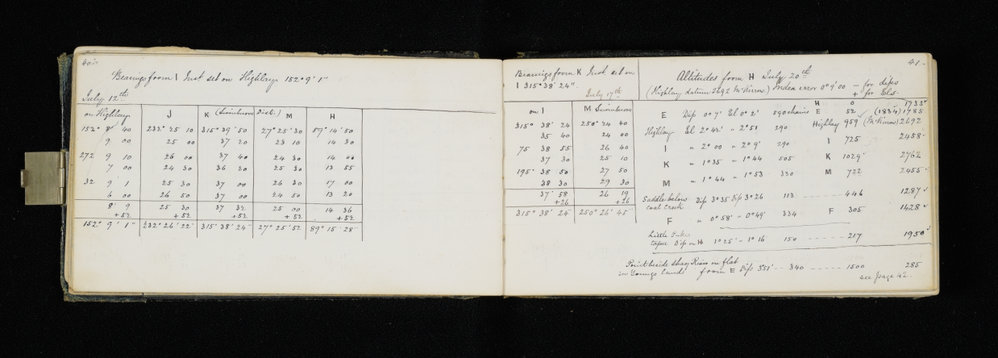 Bearings from I Inst. set on Highlays 152° 9' 1"
July 12th
on Highlays J K (Swinburn Dist.) M H
152° 8' 40 232° 25 10 315° 39' 50 27° 25' 30 89° 14' 50
9 00 25 00 37 20 23 10 14 30
272 9 10 26 00 37 40 24 30 14 00
7 00 24 30 36 20 25 30 13 55
32 9 1 25 30 37 00 26 30 17 00
6 00 26 50 37 00 24 50 13 20
8 9 25 30 37 32 25 00 14 36
+52 +52 +52 +52 +52
152° 9' 1" 232° 26' 22" 315° 38' 24" 27° 25' 52 89° 15' 28"
Bearings from K Inst. set on
I 315° 38' 24"
July 17th
on I M Swinburn
315° 38' 24 250° 24 40
35 40 24 00
75 38 55 26 40
37 30 25 10
195° 38 50 27 50
38 30 29 30
37 58 26 19
+26 +26
315° 38' 24" 250° 26' 45
41
Altitudes from H July 20th
Index error 0° 9' 00 - for dips
+ for Els.
H 0 1733
E Dip 0° 7' El 0° 2' 590 chains E 52 (1834) 1785
Highlay El 2° 42' - 2° 51 290 Highlay 959 2692
I " 2° 00 " 2° 9' 290 I 725 2458
K " 1° 35 - 1° 44 505 K 1029 2762
M " 1° 44 - 1° 53 330 M 722 2455
Saddle below
coal creek Dip 3° 35 Dip 3° 26 113 - 446 1287
F " 0° 58' - 0° 49' 334 F 305 1428
Little
Dip on H 1° 25' - 1° 16 150 217 1950
Point beside Shag River on flat
from E Dip 3° 51' - 340 1500 285
see page 42.